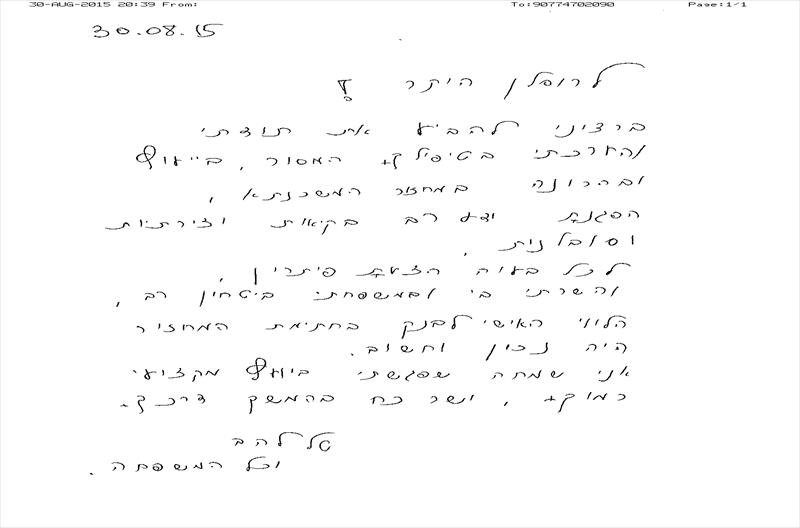 30-AUG-2015 20:39 From: To:90774702090 Page:1/1
30.08.15
היקר !
ברצוני להביע את תודתי
והערכתי בטיפולך המסור , בייעוץ
ובהכוונה במחזור המשכנתא ,
הפגנת ידע רב בקיאות ויצירתיות
וסובלנית ,
לכל בעיה הצעת פיתרון ,
והשרתי בי ובמשפחתי ביטחון רב ,
הלווי האישי לבנק בחתימת המחזור
היה נכון וחשוב .
אני שמחה שפגשתי ביועץ מקצועי
כמוך , וישר כח בהמשך דרכך
טל להב
וכל המשפחה .